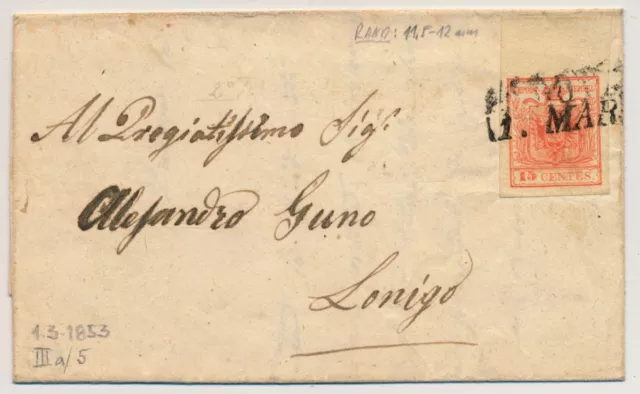 RAND: 11,5-12 mm
2°
1. MAR
15 CENTES.
Al Pregiatissimo Sig.
Alesandro Guno
Lonigo
1.3-1853
III a/5